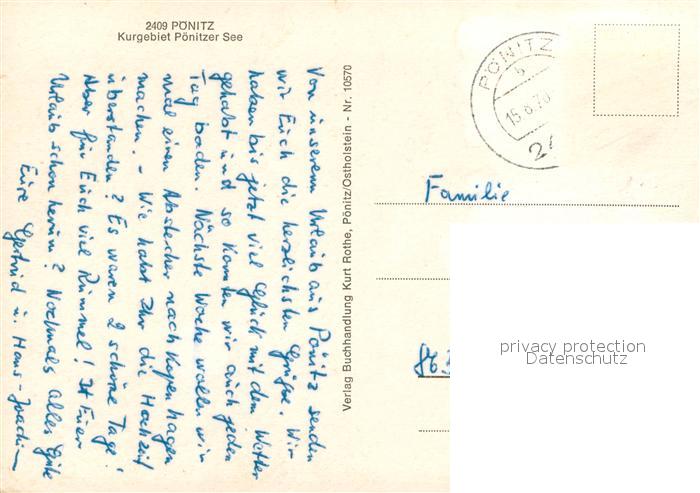 2409 PÖNITZ
Kurgebiet Pönitzer See
Von unserem Urlaub aus Pönitz senden
wir Euch die herzlichsten Grüße. Wir
haben bis jetzt viel Glück mit dem Wetter
gehabt und so konnten wir auch jeden
Tag baden. Nächste Woche wollen wir
mal einen Abstecher nach Kopenhagen
machen. - Wie habt Ihr die Hochzeit
überstanden? Es waren 2 schöne Tage!
Aber für Euch viel Rummel! Ist Euer
Urlaub schon herum? Nochmals alles Gute
Eure Gertrud u. Hans-Joachim
Verlag Buchhandlung Kurt Rothe, Pönitz/Ostholstein - Nr. 10570
PÖNITZ
b
15.8.70
24
Familie
privacy protection
Datenschutz